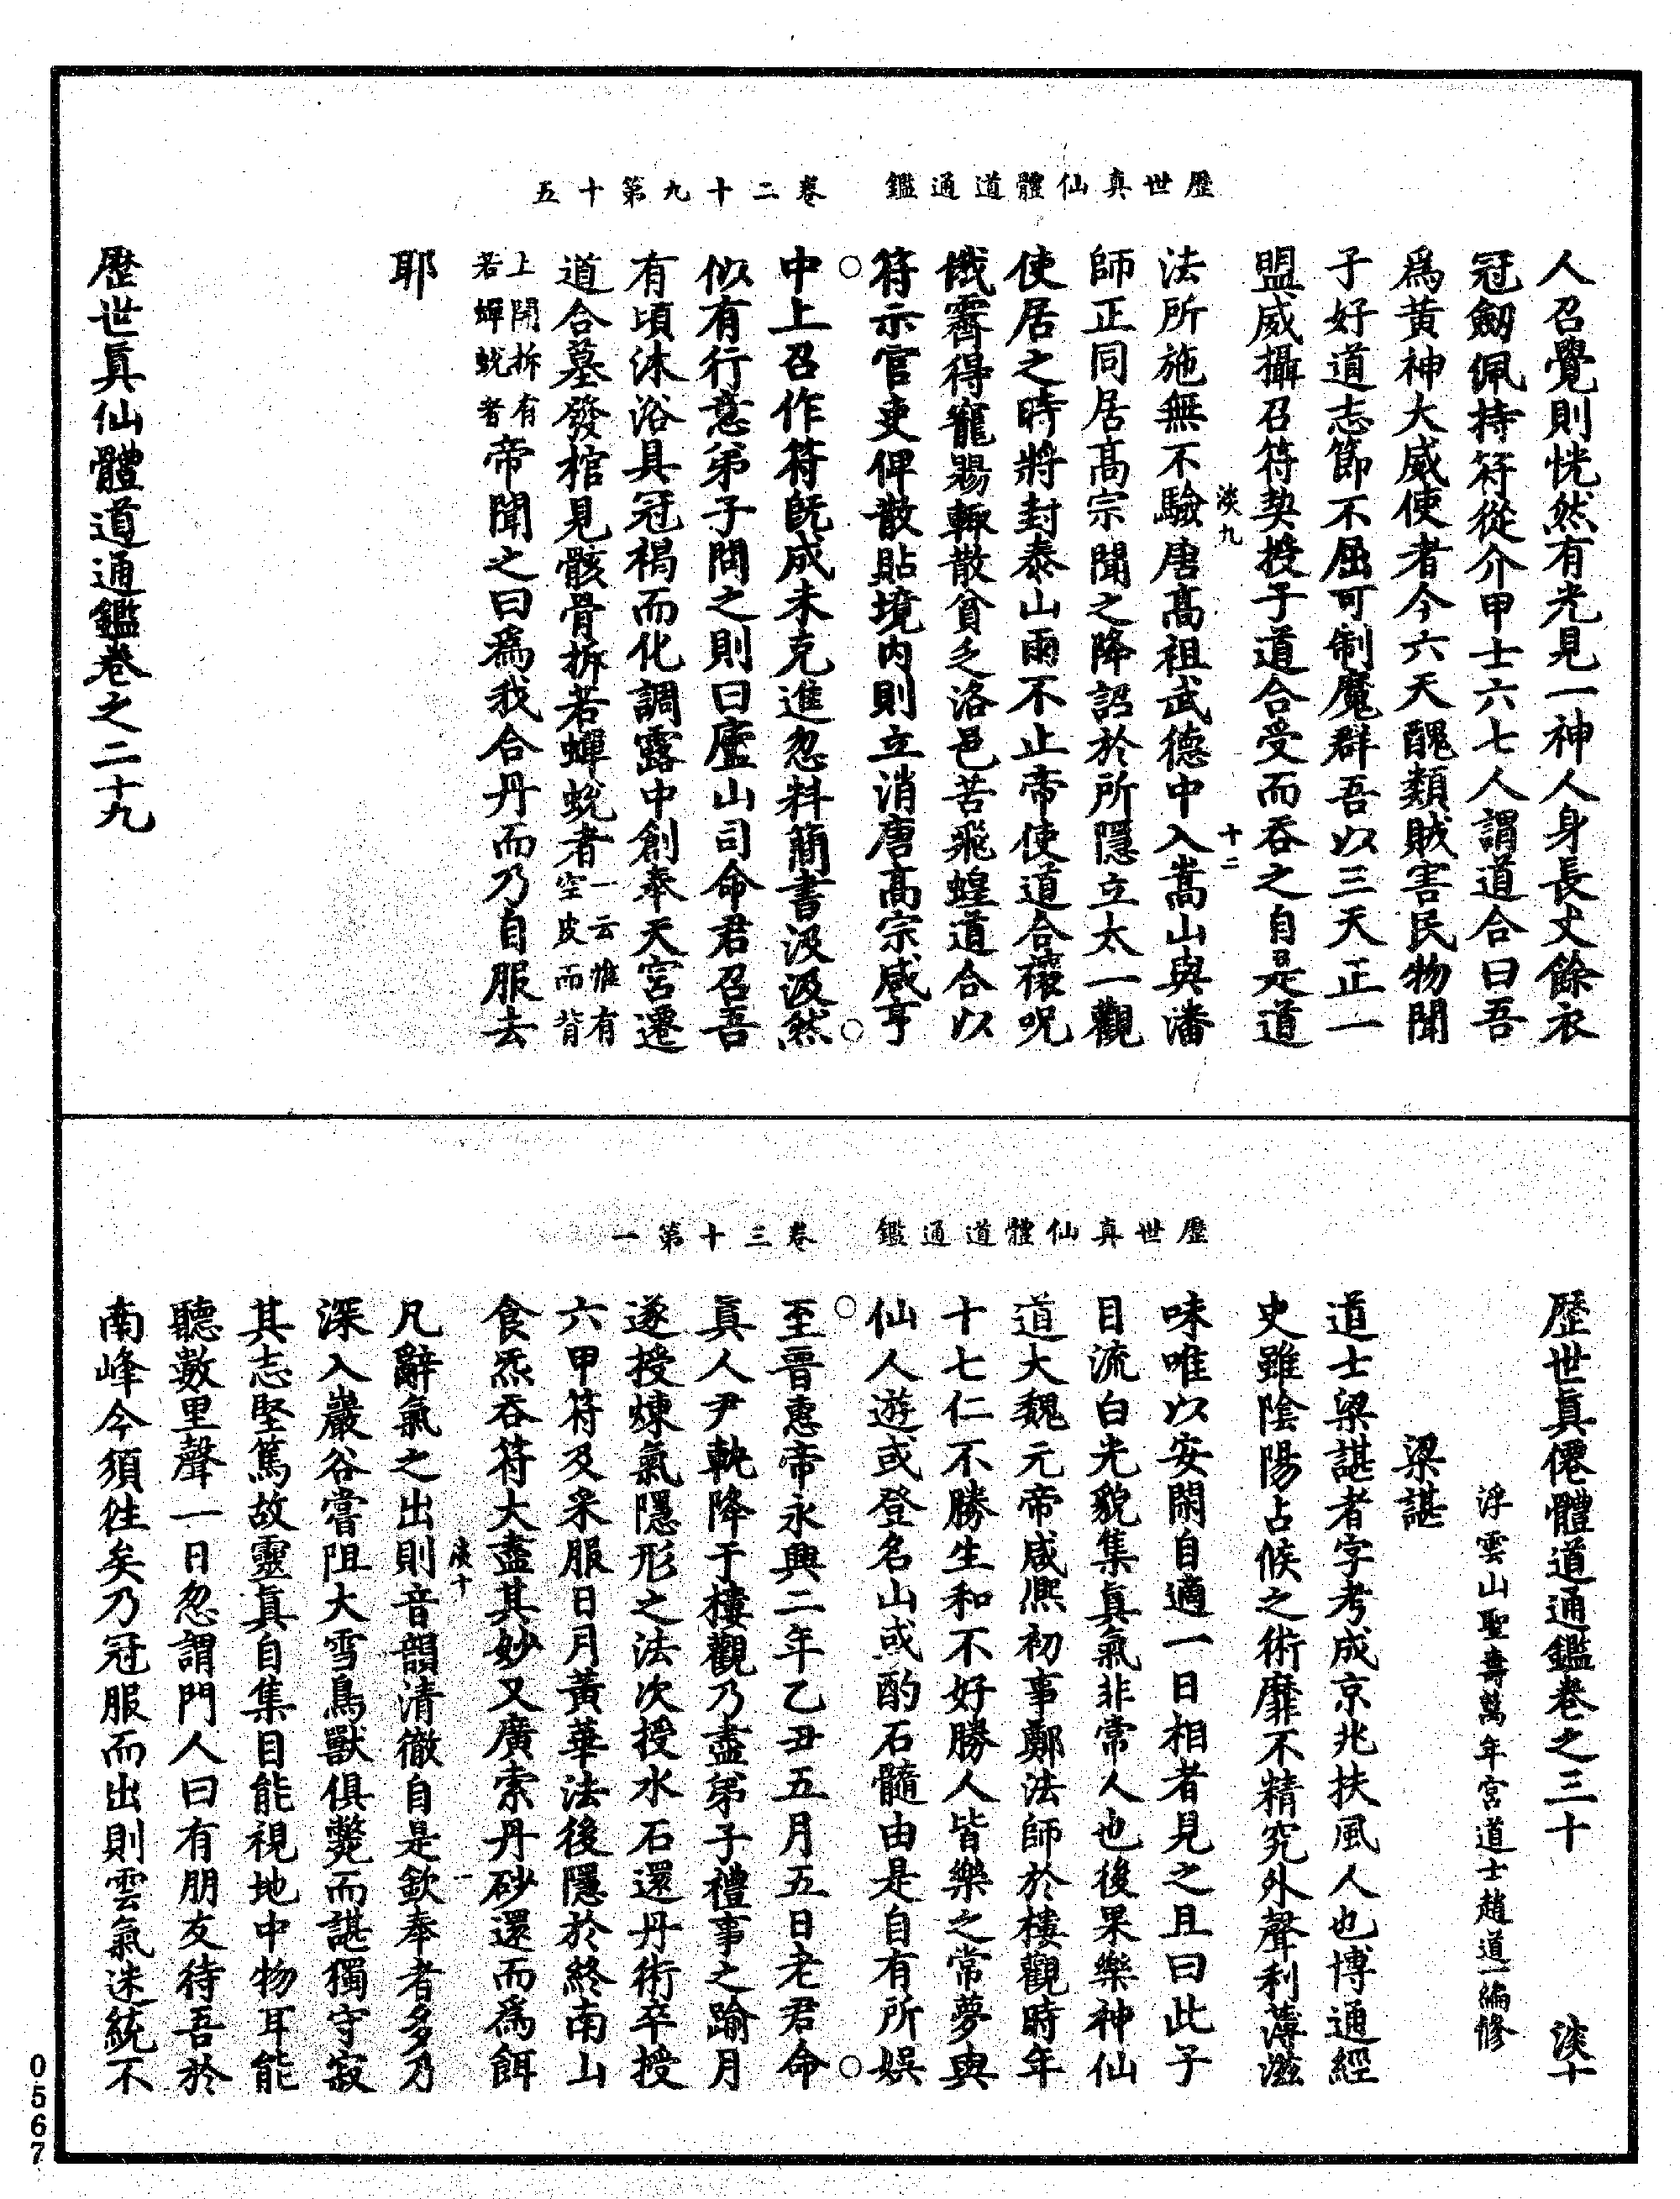 歷世真仙體道通鑑　卷二十九第十五
人召覺則恍然有光見一神人身長丈餘衣
冠劒佩持符從介甲士六七人謂道合曰吾
為黃神大威使者今六天醜類賊害民物聞
子好道志節不屈可制魔群吾以三天正一
盟威攝召符契授子道合受而吞之自是道
淡九　十二
法所施無不驗唐高祖武德中入嵩山與潘
師正同居高宗聞之降詔於所隱立太一觀
使居之時將封泰山雨不止帝使道合禳呪
俄霽得寵賜輒散貧乏洛邑苦飛蝗道合以
符示官吏俾散貼境內則立消唐高宗咸亨
中上召作符既成未克進忽料簡書汲汲然
似有行意弟子問之則曰廬山司命君召吾
有頃沐浴具冠褐而化調露中創奉天宮遷
道合墓發棺見骸骨拆若蟬蛻者一云惟有空皮而背
上開拆有若蟬蛻者帝聞之曰為我合丹而乃自服去
耶
歷世真仙體道通鑑卷之二十九
歷世真仙體道通鑑　卷三十第一
歷世真僊體道通鑑卷之三十　淡十
浮雲山聖壽萬年宮道士趙道一編修
梁諶
道士梁諶者字考成京兆扶風人也博通經
史雖陰陽占候之術靡不精究外聲利薄滋
味唯以安閑自適一日相者見之且曰此子
目流白光貌集真氣非常人也後果樂神仙
道大魏元帝咸熙初事鄭法師於樓觀時年
十七仁不勝生和不好勝人皆樂之常夢與
仙人遊或登名山或酌石髓由是自有所娛
至晉惠帝永興二年乙丑五月五日老君命
真人尹軌降于樓觀乃盡弟子禮事之踰月
遂授煉氣隱形之法次授水石還丹術卒授
六甲符及采服日月黃華法後隱於終南山
食炁吞符大盡其妙又廣索丹砂還而為餌
淡十　一
凡辭氣之出則音韻清徹自是欽奉者多乃
深入巖谷嘗阻大雪鳥獸俱斃而諶獨守寂
其志堅篤故靈真自集目能視地中物耳能
聽數里聲一日忽謂門人曰有朋友待吾於
南峰今須往矣乃冠服而出則雲氣迷統不
0567